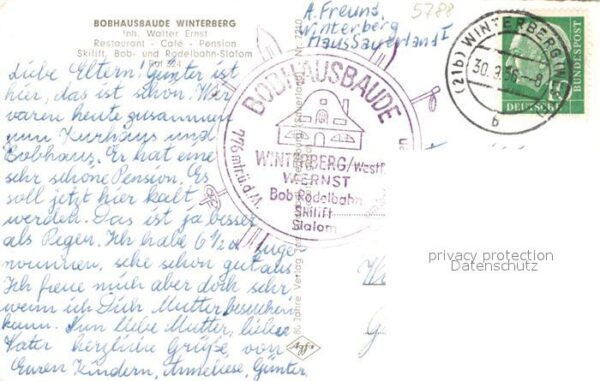 BOBHAUSBAUDE WINTERBERG
Inh. Walter Ernst
Restaurant - Café - Pension
Skilift, Bob- und Rodelbahn-Slalom
Ruf 524
Liebe Eltern! Günter ist
hier, das ist schön. Wir
waren heute zusammen
zum Kurhaus und
Bobhaus. Er hat eine
sehr schöne Pension. Es
soll jetzt hier kalt
werden. Das ist ja besser
als Regen. Ich habe 6 1/2 zuge-
nommen, sehe schön gut aus.
Ich freue mich aber doch sehr
wenn ich Dich Mutter besuchen
kann. Nun liebe Mutter, lieber
Vater herzliche Grüße, von
Euren Kindern, Anneliese, Günter
A. Freund,
Winterberg
Haus Sauerland I
5788
BOBHAUSBAUDE
WINTERBERG/Westf.
W. ERNST
Bob Rodelbahn
Skilift
Slalom
776 mtr ü.d.M.
(21b) WINTERBERG
30.9.56.-8
b
DEUTSCHE
BUNDESPOST
privacy protection
Datenschutz